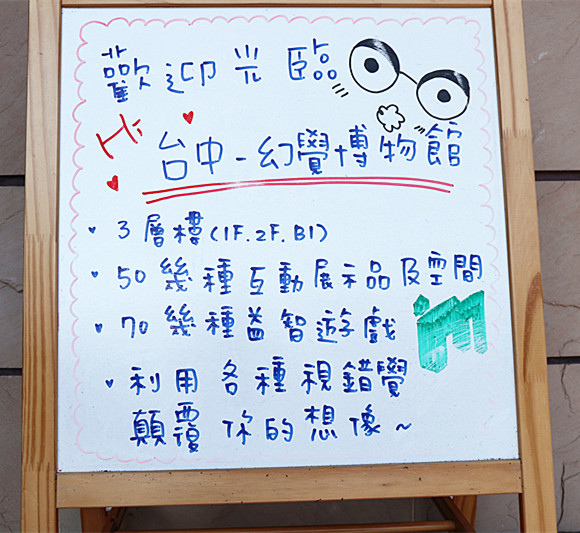 歡迎光臨
Hi
台中-幻覺博物館
3層樓(1F.2F.B1)
50幾種互動展示品及空間
70幾種益智遊戲
利用各種視錯覺
顛覆你的想像~